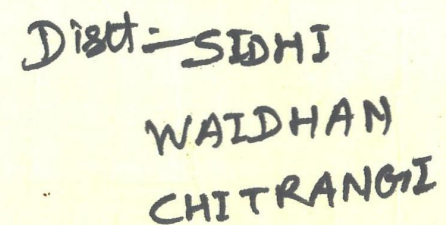 Distt:- SIDHI
WAIDHAN
CHITRANGI